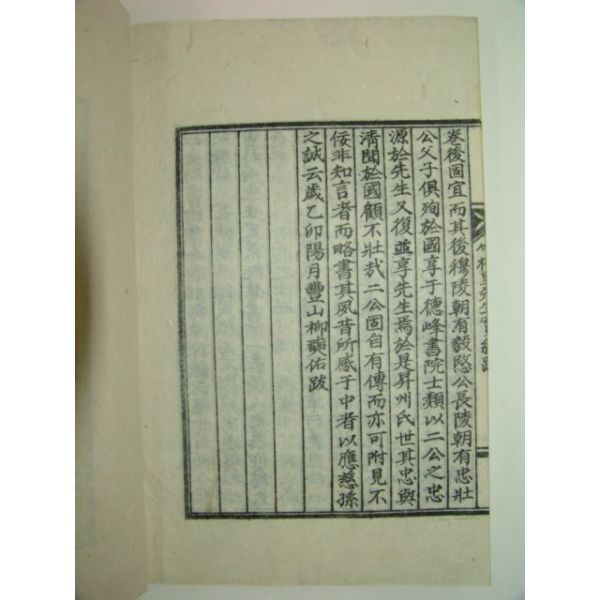 卷後固宜而其後穆陵朝有毅愍公長陵朝有忠壯
公父子俱殉於國享于德峰書院士類以二公之忠
源於先生又復並享先生焉於是昇州氏世其忠與
淸聞於國顧不壯哉二公固自有傳而亦可附見不
佞非知言者而略書其夙昔所感于中者以應慈孫
之誠云歲乙卯陽月豐山柳奭佑跋